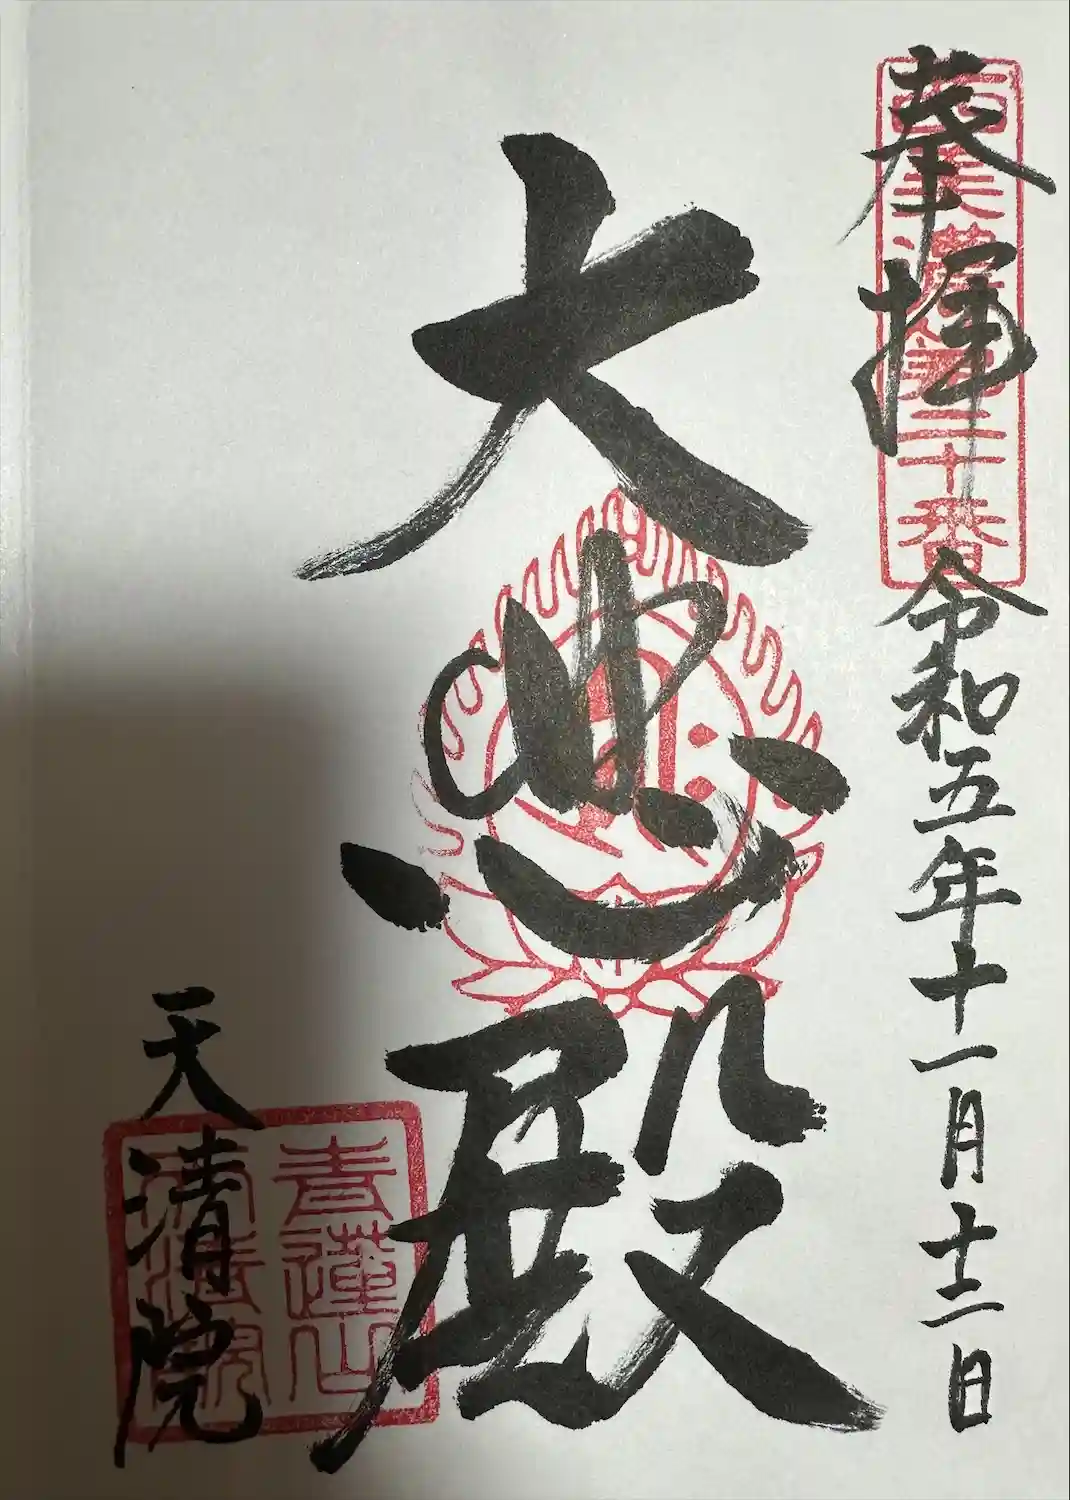 奉拝
西美濃
十番
令和五年十一月十二日
大悲殿
天清院
青蓮山